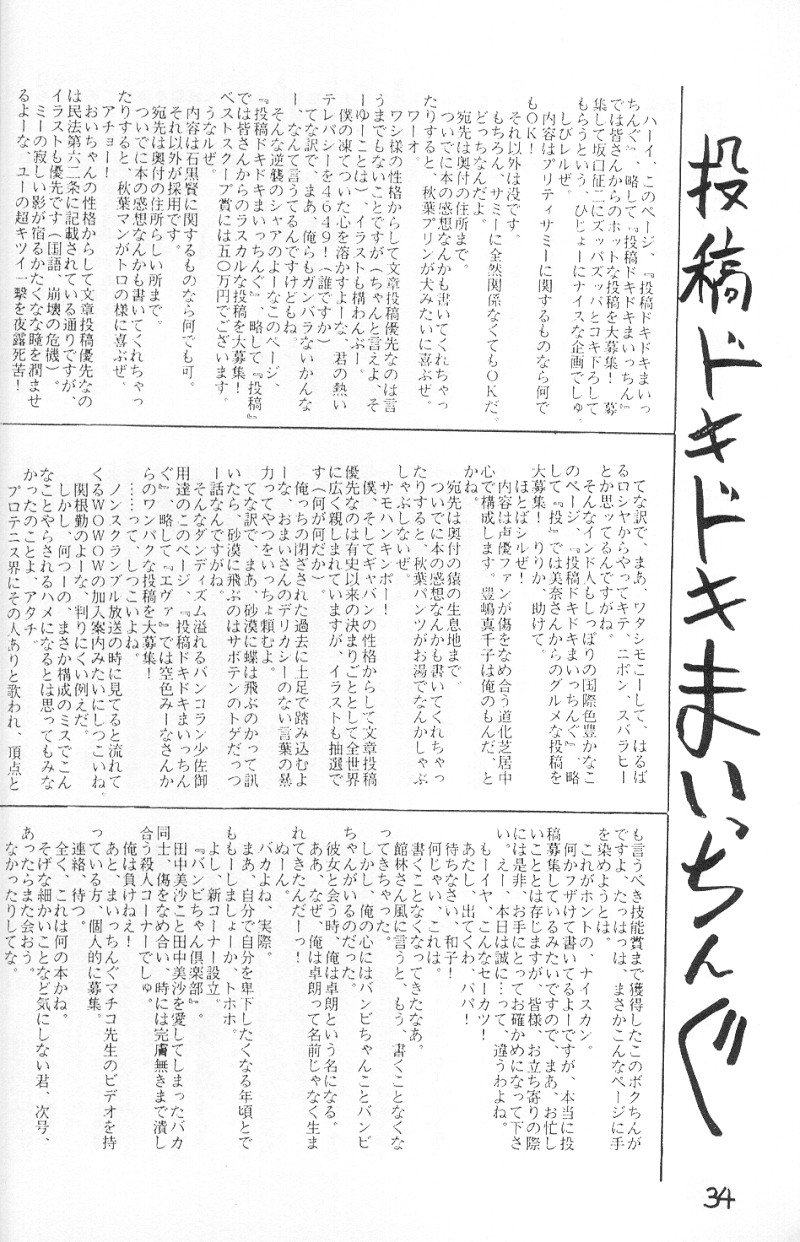 投稿ドキドキまいっちんぐ
ハーイ、このページ、『投稿ドキドキまいっ
ちんぐ』、略して『投稿ドキドキまいっちん』
では皆さんからのホットな投稿を大募集！　募
集して坂口征二にズッパズッパとコキ下ろして
もらうという、ひじょーにナイスな企画でしゅ。
しびレルぜ。
内容はプリティサミーに関するものなら何で
もOK！
それ以外は没です。
もちろん、サミーに全然関係なくてもOKだ。
どっちなんだよ。
宛先は奥付の住所まで。
ついでに本の感想なんかも書いてくれちゃっ
たりすると、秋葉プリンが犬みたいに喜ぶぜ。
ワーオ。
ワシ様の性格からして文章投稿優先なのは言
うまでもないことですが（ちゃんと言えよ、そ
ーゆーことは）、イラストも構わんぶー。
僕の凍てついた心を溶かすよーな、君の熱い
テレパシーを4649！（誰ですか）
てな訳で、まあ、俺らもガンバラないかんな
ー、なんて言うてるんですけどもね。
そんな逆襲のシャアのよーなこのページ、
『投稿ドキドキまいっちんぐ』、略して『投稿』
では皆さんからのラスカルな投稿を大募集！
ベストスクープ賞には五〇万円でございます。
うなるぜ。
内容は石黒賢に関するものなら何でも可。
それ以外が採用です。
宛先は奥付の住所らしい所まで。
ついでに本の感想なんかも書いてくれちゃっ
たりすると、秋葉マンがトロの様に喜ぶぜ、
アチョー！
おいちゃんの性格からして文章投稿優先なの
は民法第六二条に記載されている通りですが、
イラストも優先です（国語、崩壊の危機）。
ミーの寂しい影が宿るかたくなな瞳を潤ませ
るよーな、ユーの超キツイ一撃を夜露死苦！
てな訳で、まあ、ワタシモニーして、はるば
るロシヤからやってキテ、ニポン、スバラヒー
とか思ってるんですがね。
そんなインド人もしっぽりの国際色豊かなこ
のページ、『投稿ドキドキまいっちんぐ』、略
して『投』では美奈さんからのグルメな投稿を
大募集！　りりか、助けて。
ほとばシルぜ！
内容は声優ファンが傷をなめ合う道化芝居中
心で構成します。豊嶋真千子は俺のもんだ、と
かね。
宛先は奥付の猿の生息地まで。
ついでに本の感想なんかも書いてくれちゃっ
たりすると、秋葉パンツがお湯でなんかしゃぶ
しゃぶしないぜ。
サモハンキンポー！
僕、そしてギャバンの性格からして文章投稿
優先なのは有史以来の決まりごととして全世界
に広く親しまれていますが、イラストも抽選で
す（何が何だか）。
俺っちの閉ざされた過去に土足で踏み込むよ
ーな、おまいさんのデリカシーのない言葉の暴
力ってやつをいっちょ頼むよ。
てな訳で、まあ、砂漠に蝶は飛ぶのかって訊
いたら、砂漠に飛ぶのはサボテンのトゲだっつ
ー話なんですがね。
そんなダンディズム溢れるバンコラン少佐御
用達のこのページ、『投稿ドキドキまいっちん
ぐ』、略して『エヴァ』では空色みーなさんか
らのワンパクな投稿を大募集！
……って、しつこいよね。
ノンスクランブル放送の時に見てると流れて
くるWOWOWの加入案内みたいにしつこいね。
関根勤のよーな、判りにくい例えだ。
しかし、何つーの、まさか構成のミスでこん
なことやらされるハメになるとは思ってもみな
かったのことよ、アタチ。
プロテニス界にその人ありと歌われ、頂点と
も言うべき技能賞まで獲得したこのボクちんが
ですよ、たっはっは、まさかこんなページに手
を染めようとは。
これがホントの、ナイスカン。
何かフザけて書いてるよーですが、本当に投
稿募集しているみたいですので、まあ、お忙し
いこととは存じますが、皆様、お立ち寄りの際
には是非、お手にとってお確かめになって下さ
い。えー、本日は誠に…って、違うわよね。
もーイヤ、こんなセーカツ！
あたし、出てくわ、パパ！
待ちなさい、和子！
何じゃい、これは。
書くことなくなってきたなあ。
館林さん風に言うと、もう、書くことなくな
ってきちゃった。
しかし、俺の心にはバンビちゃんことバンビ
ちゃんがいるのだった。
彼女と会う時、俺は卓朗という名になる。
ああ、なぜ、俺は卓朗って名前じゃなく生ま
れてきたんだーっ！
ぬーん。
バカよね、実際。
まあ、自分で自分を卑下したくなる年頃とで
ももーしましょーか、トホホ。
よし、新コーナー設立。
『バンビちゃん倶楽部』。
田中美沙こと田中美沙を愛してしまったバカ
同士、傷をなめ合い、時には完膚無きまで潰し
合う殺人コーナーでしゅ。
俺は負けねえ！
あと、まいっちんぐマチコ先生のビデオを持
っている方、個人的に募集。
連絡、待つ。
全く、これは何の本かね。
そげな細かいことなど気にしない君、次号、
あったらまた会おう。
なかったりしてな。
34